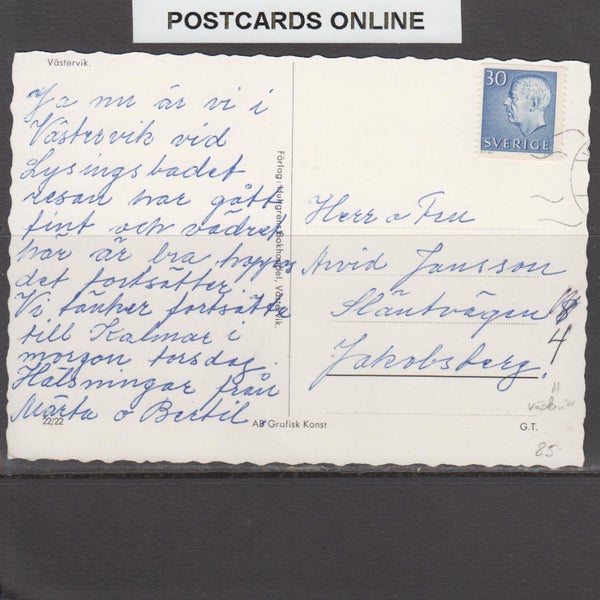 POSTCARDS ONLINE
Västervik.
Ja nu är vi i
Västervik vid
Lysingsbadet
resan har gått
fint och vädret
har är bra, hoppas
det fortsätter.
Vi tänker fortsätta
till Kalmar i
morgon torsdag.
Hälsningar från
Märta o Bertil
22/22
Förlag: Bokhandel, Västervik.
AB Grafisk Konst
G.T.
30
SVERIGE
Herr o Fru
Arvid Jansson
Släntvägen
4
Jakobsberg.
85-